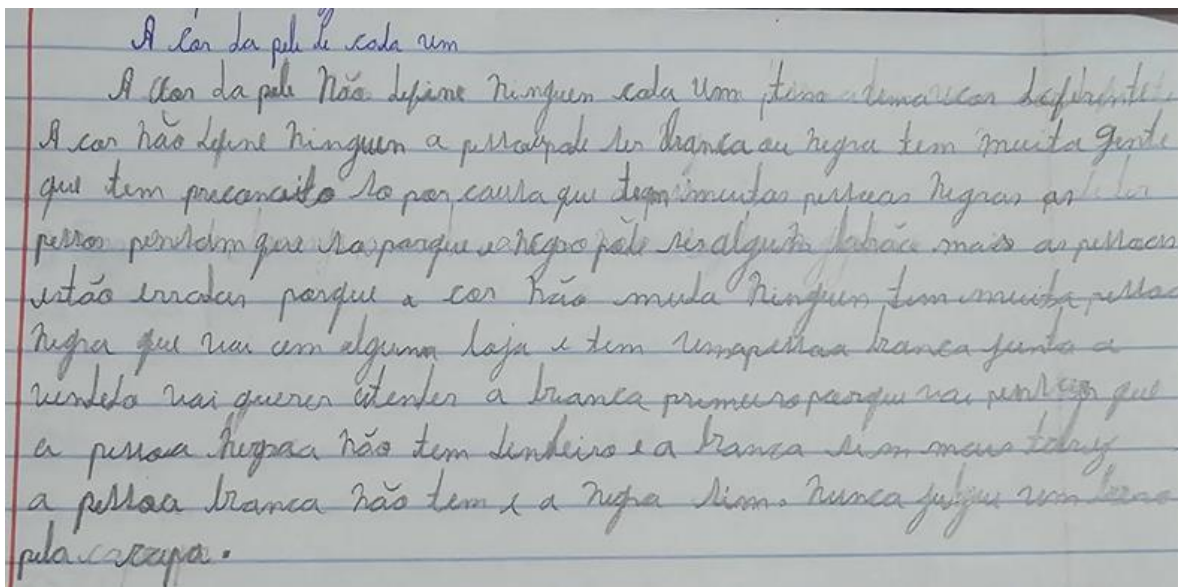 A Cor da pele de cada um
A Cor da pele não define ninguen cada um tem uma cor deferente.
A cor não define ninguen a pessoa pode ser branca ou negra tem muita gente
que tem preconcaito so por causa que tem muitas pessoas negras as
pesso pensam que so porque e negro pode ser algum ladrão mais as pessoas
estão erradas porque a cor não muda ninguen tem muita pessoa
negra que vai em alguma loja e tem uma pessoa branca junto a
vai querer atender a branca primeiro porque vai pensar que
a pessoa negra não tem dinheiro e a branca sim mais
a pessoa branca não tem e a negra sim. nunca julgue um livro
pela capa.